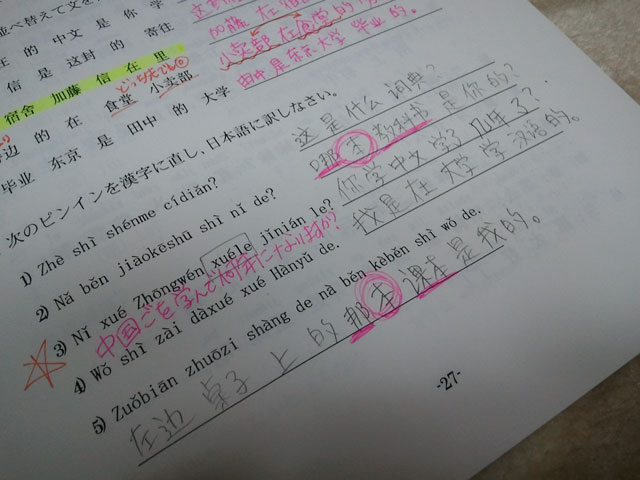 並べ替えて文を
在 的 中文 是 你 学
信 是 这封 的 寄往
宿舍 加藤 信 在 里
どっちでも◎
边 的 在 食堂 小卖部
毕业 东京 是 田中 的 大学
加藤 在 宿舍
小卖部 在 食堂 的
田中 是 东京 大学 毕业 的。
次のピンインを漢字に直し、日本語に訳しなさい。
1) Zhè shì shénme cídiǎn?
这 是 什么 词典?
2) Nǎ běn jiàokēshū shì nǐ de?
哪 本 教科书 是 你 的?
3) Nǐ xué Zhōngwén xuéle jǐnián le?
你 学 中文 学了 几年 了?
中国ごを学んで何年になりますか?
4) Wǒ shì zài dàxué xué Hànyǔ de.
我 是 在 大学 学 汉语 的。
5) Zuǒbiān zhuōzi shàng de nà běn kèběn shì wǒ de.
左边 桌子 上 的 那 本 课本 是 我 的。
-27-